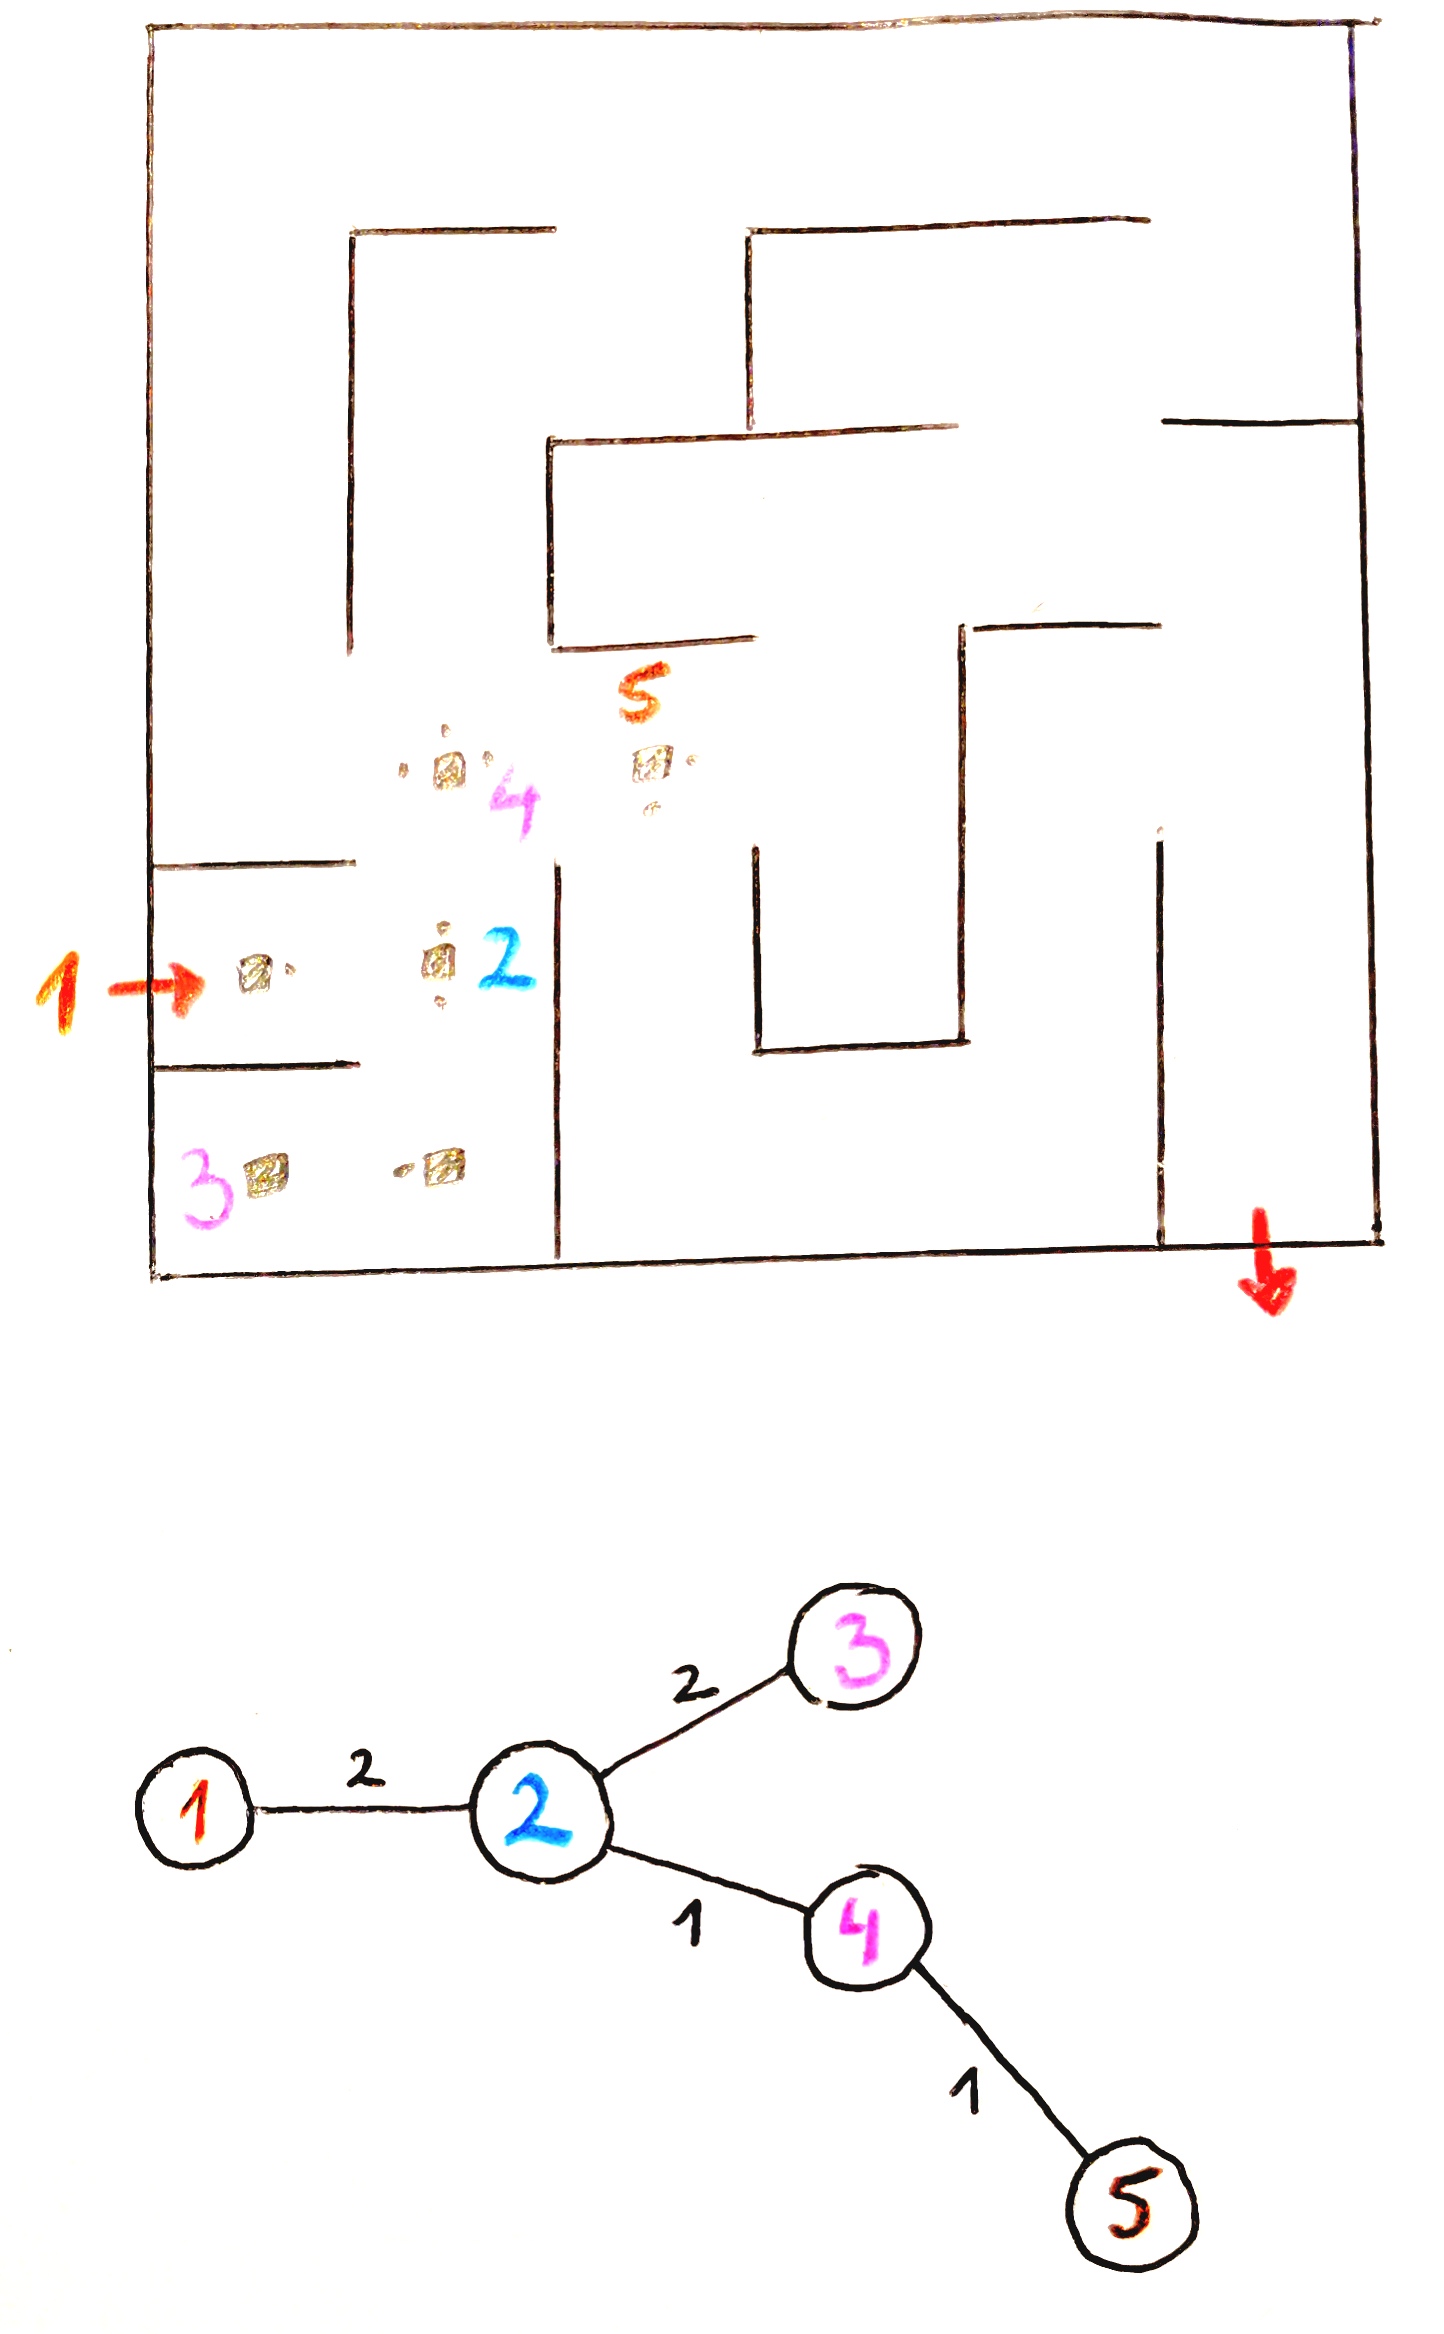 5
4
1
2
3
3
2
2
1
2
1
4
1
5